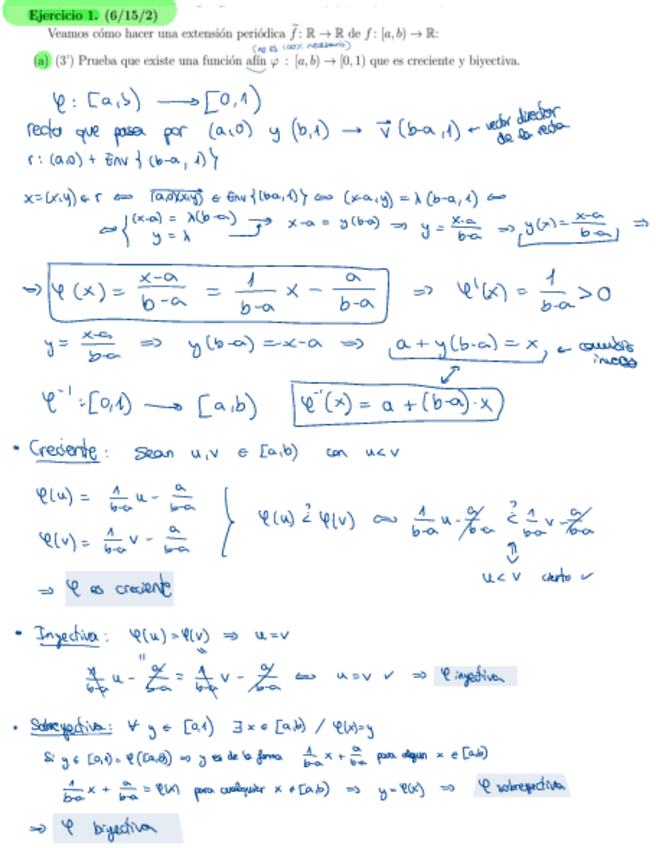 Ejercicio 1. (6/15/2)
Veamos cómo hacer una extensión periódica f̃: ℝ → ℝ de f: [a, b) → ℝ:
(no es 100% necesario)
(a) (3') Prueba que existe una función afín φ : [a, b) → [0, 1) que es creciente y biyectiva.
φ: [a,b) ⟶ [0,1)
recta que pasa por (a,0) y (b,1) → v⃗ (b-a,1) ← vector director de la recta
r: (a,0) + Env {(b-a, 1)}
x=(x,y) ∈ r ⟺ (a,0)(x,y) ∈ Env {(b-a,1)} ⟺ (x-a,y) = λ(b-a,1) ⟺
⟺ { (x-a) = λ(b-a) y = λ → x-a = y(b-a) ⇒ y = x-a/b-a ⇒ y(x) = x-a/b-a ⇒
⇒ φ(x) = x-a/b-a = 1/b-a x - a/b-a ⇒ φ'(x) = 1/b-a > 0
y = x-a/b-a ⇒ y(b-a) = x-a ⇒ a + y(b-a) = x, ←
φ⁻¹: [0,1) ⟶ [a,b) φ⁻¹(x) = a + (b-a)·x
• Creciente: Sean u,v ∈ [a,b) con u<v
φ(u) = 1/b-a u - a/b-a
φ(v) = 1/b-a v - a/b-a } φ(u) ¿ φ(v) ⟺ 1/b-a u - a/b-a ¿ 1/b-a v - a/b-a
u < v cierto ✓
⇒ φ es creciente
• Inyectiva: φ(u) = φ(v) ⇒ u=v
1/b-a u - a/b-a = 1/b-a v - a/b-a ⟺ u=v ✓ ⇒ φ inyectiva
• Sobreyectiva: ∀ y ∈ [0,1) ∃ x ∈ [a,b) / φ(x)=y
Si y ∈ [0,1) = φ([a,b)) ⇒ y es de la forma 1/b-a x + a/b-a para algun x ∈ [a,b)
1/b-a x + a/b-a = φ(x) para cualquier x ∈ [a,b) ⇒ y = φ(x) ⇒ φ sobreyectiva
⇒ φ biyectiva